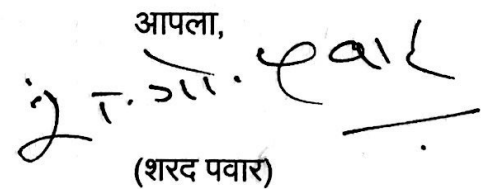 आपला,
(शरद पवार)